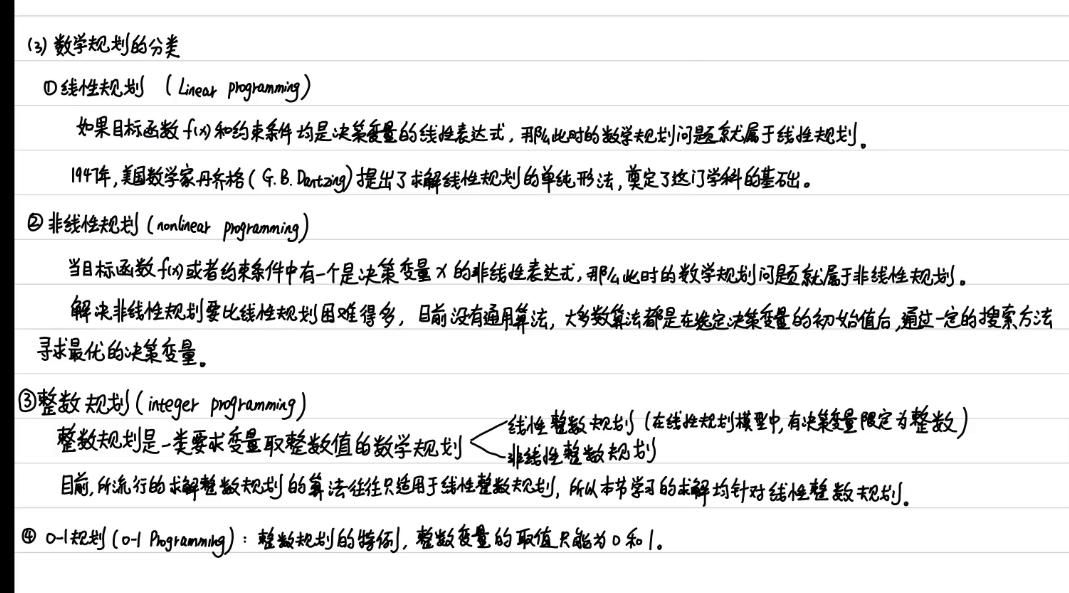 (3) 数学规划的分类
① 线性规划 (Linear programming)
如果目标函数 f(x) 和约束条件均是决策变量的线性表达式，那么此时的数学规划问题就属于线性规划。
1947年，美国数学家丹齐格（G.B.Dantzing）提出了求解线性规划的单纯形法，奠定了这门学科的基础。
② 非线性规划 (nonlinear programming)
当目标函数 f(x) 或者约束条件中有一个是决策变量 x 的非线性表达式，那么此时的数学规划问题就属于非线性规划。
解决非线性规划要比线性规划困难得多，目前没有通用算法，大多数算法都是在选定决策变量的初始值后，通过一定的搜索方法
寻求最优的决策变量。
③ 整数规划 (integer programming)
线性整数规划（在线性规划模型中，有决策变量限定为整数）
整数规划是一类要求变量取整数值的数学规划
非线性整数规划
目前，所流行的求解整数规划的算法往往只适用于线性整数规划，所以本节学习的求解均针对线性整数规划。
④ 0-1规划 (0-1 Programming)：整数规划的特例，整数变量的取值只能为0和1。